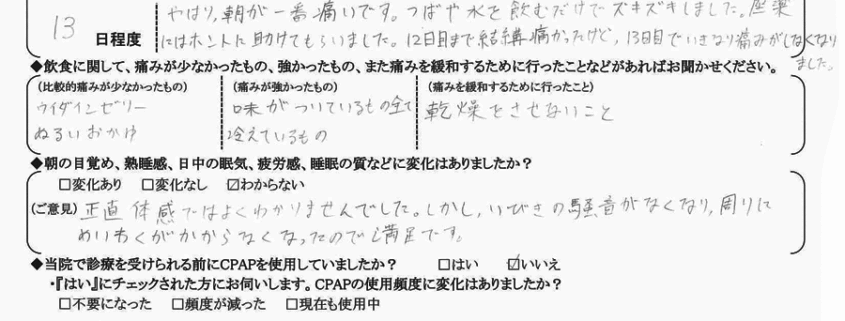 やはり、朝が一番痛いです。つばや水を飲むだけでズキズキしました。座薬
13 日程度 にはホントに助けてもらいました。12日目まで結構痛かったけど、13日目でいきなり痛みがしなくなり
ました。
◆飲食に関して、痛みが少なかったもの、強かったもの、また痛みを緩和するために行ったことなどがあればお聞かせください。
(比較的痛みが少なかったもの) (痛みが強かったもの) (痛みを緩和するために行ったこと)
ウイダインゼリー 味がついているもの全て 乾燥をさせないこと
ぬるいおかゆ 冷えているもの
◆朝の目覚め、熟睡感、日中の眠気、疲労感、睡眠の質などに変化はありましたか?
□変化あり □変化なし ☑わからない
(ご意見) 正直体感ではよくわかりませんでした。しかし、いびきの騒音がなくなり、周りに
めいわくがかからなくなったので満足です。
◆当院で診療を受けられる前にCPAPを使用していましたか? □はい ☑いいえ
・『はい』にチェックされた方にお伺いします。CPAPの使用頻度に変化はありましたか?
□不要になった □頻度が減った □現在も使用中